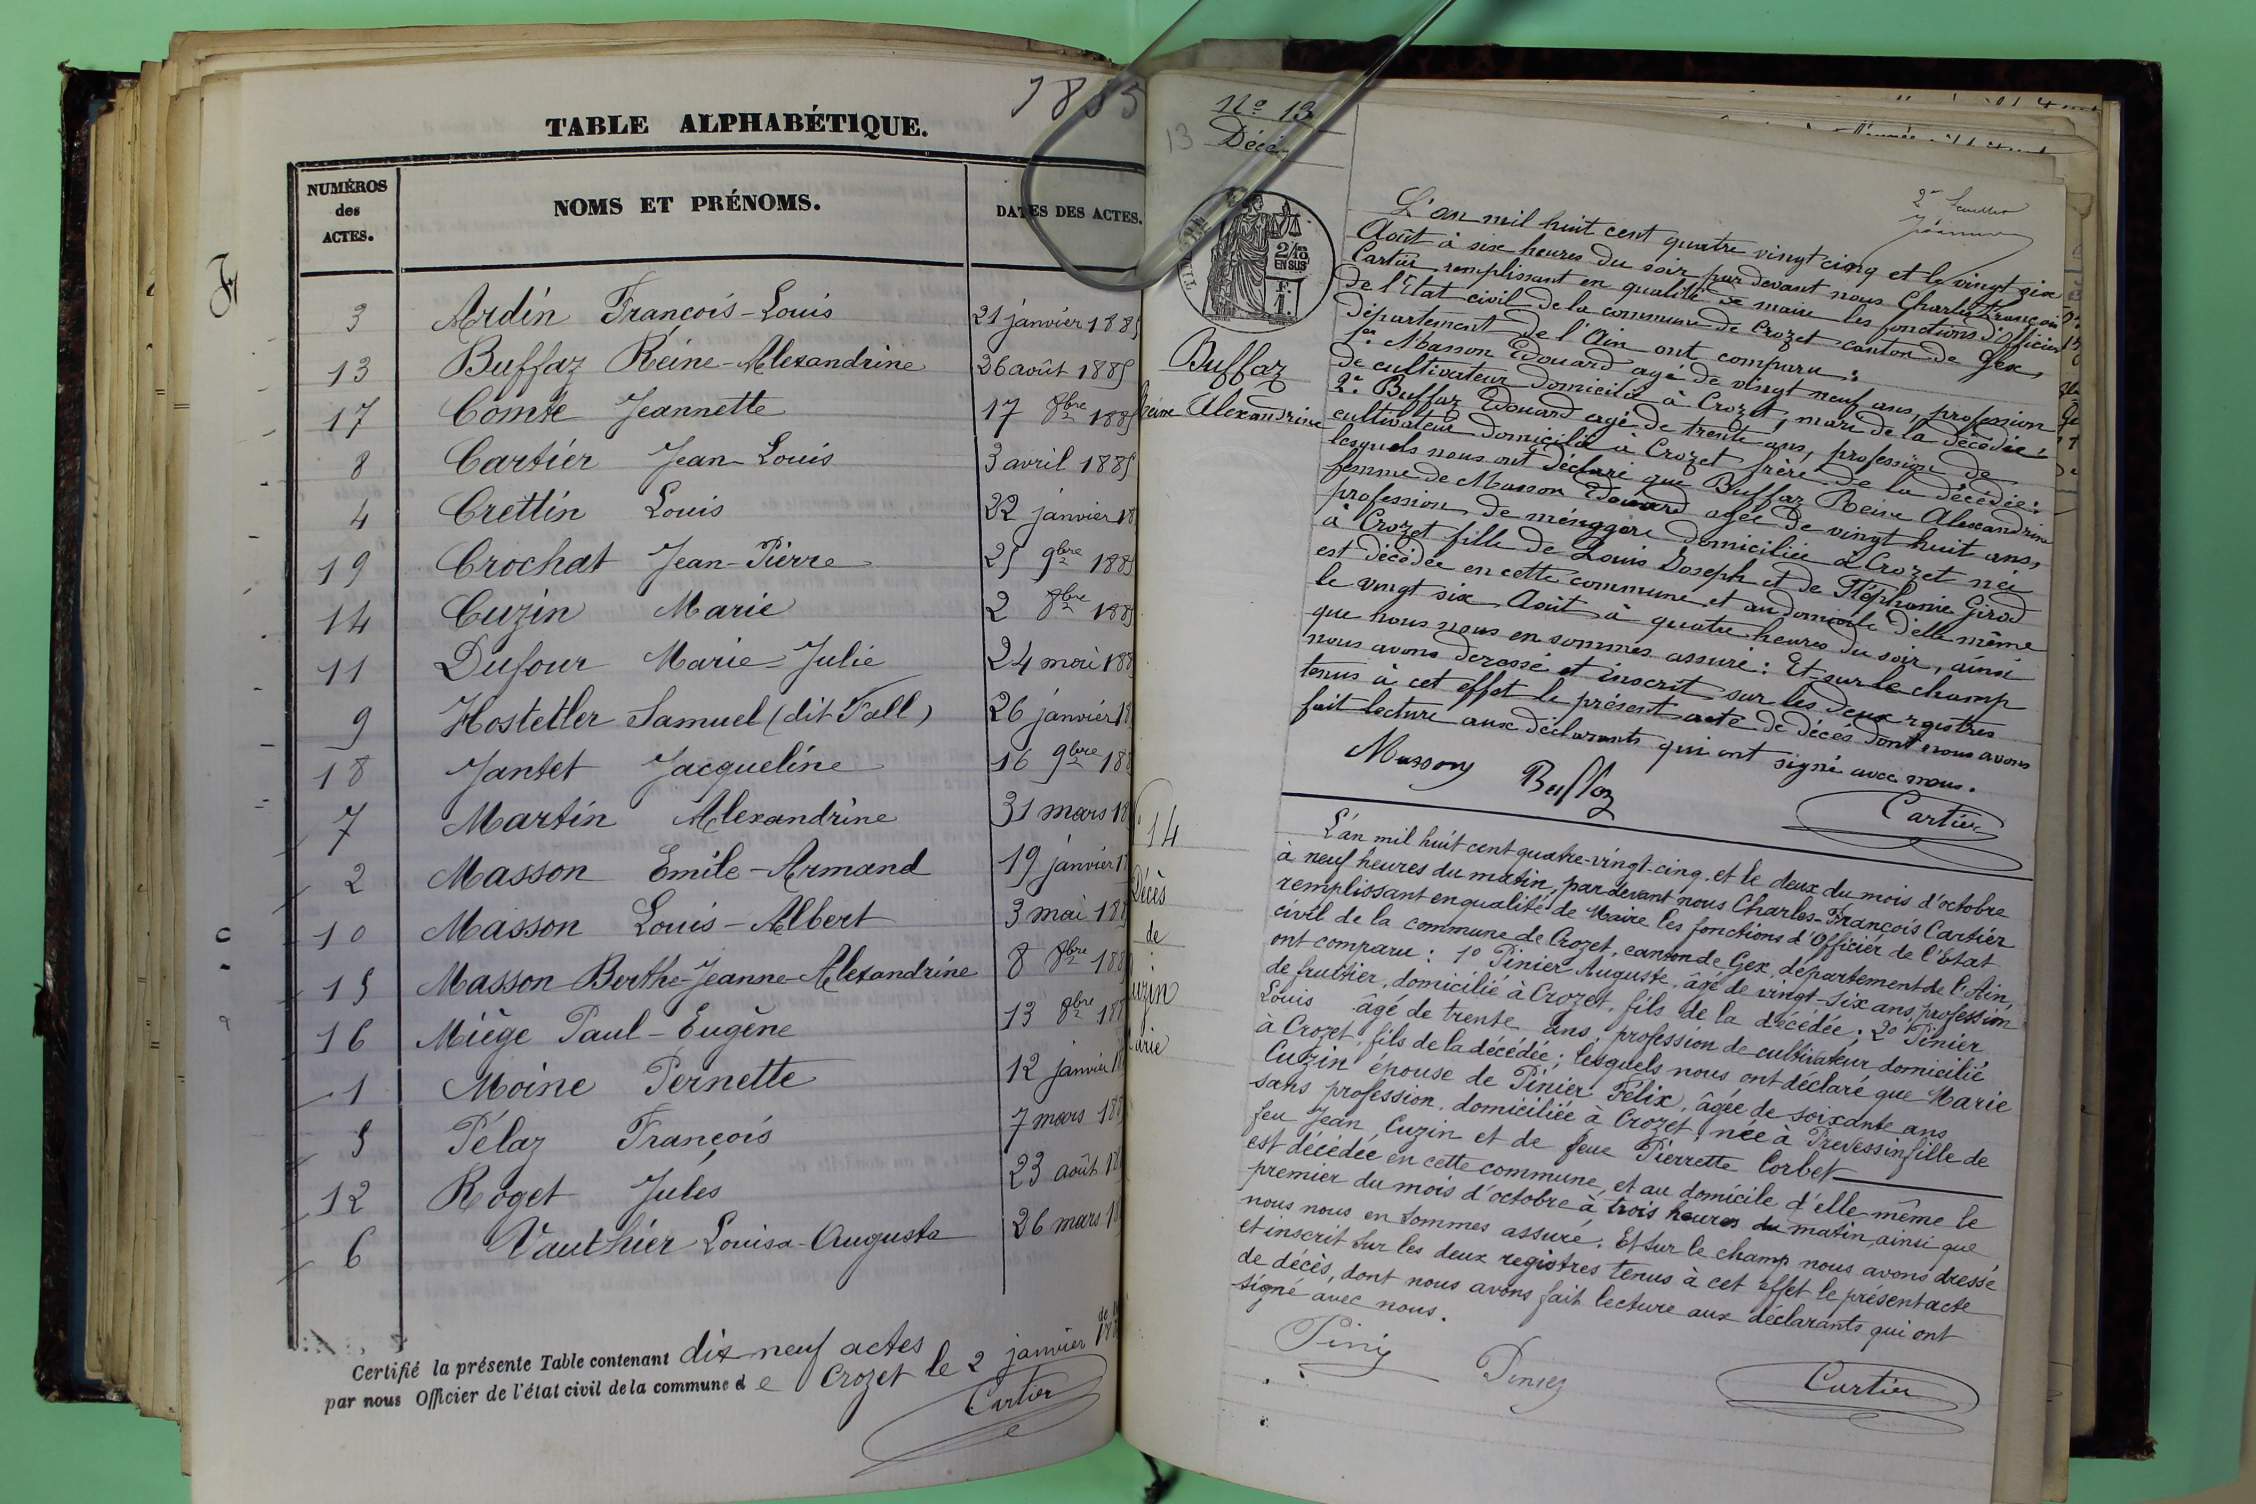 1885
TABLE ALPHABÉTIQUE.
NUMÉROS des ACTES. NOMS ET PRÉNOMS. DATES DES ACTES.
3 Ardin François-Louis 21 janvier 1885
13 Buffaz Reine-Alexandrine 26 août 1885
17 Comte Jeannette 17 8bre 1885
8 Cartier Jean-Louis 3 avril 1885
4 Crettin Louis 22 janvier 18
19 Crochat Jean-Pierre 25 9bre 1885
14 Cuzin Marie 2 8bre 1885
11 Dufour Marie-Julie 24 mai 188
9 Hostetler Samuel (dit Fall) 26 janvier 18
18 Jantet Jacqueline 16 9bre 188
7 Martin Alexandrine 31 mars 18
2 Masson Emile-Armand 19 janvier 1
10 Masson Louis-Albert 3 mai 188
15 Masson Berthe-Jeanne-Alexandrine 8 8bre 188
16 Miège Paul-Eugène 13 8bre 188
1 Moine Pernette 12 janvier 18
5 Pélaz François 7 mars 188
12 Roget Jules 23 août 18
6 Vauthier Louisa-Augusta 26 mars 18
Certifié la présente Table contenant dix neuf actes
par nous Officier de l'état civil de la commune de Crozet le 2 janvier
Cartier
No 13
13 Décè
2/10 EN SUS
F. 1.
Buffaz
Reine Alexandrine
L'an mil huit cent quatre vingt cinq et le vingt six
Août à six heures du soir par devant nous Charles François
Cartier remplissant en qualité de maire les fonctions d'Officier
de l'Etat civil de la commune de Crozet canton de Gex,
département de l'Ain ont comparu :
1o Masson Edouard agé de vingt neuf ans, profession
de cultivateur domicilié à Crozet, mari de la décédée;
2o Buffaz Edouard agé de trente ans, profession de
cultivateur domicilié à Crozet frère de la décédée:
lesquels nous ont déclaré que Buffaz Reine Alexandrine
femme de Masson Edouard agée de vingt huit ans,
profession de ménagère domiciliée à Crozet née
à Crozet fille de Louis Joseph et de Stéphanie Girod
est décédée en cette commune et au domicile d'elle même
le vingt six Août à quatre heures du soir, ainsi
que nous nous en sommes assuré: Et sur le champ
nous avons dressé et inscrit sur les deux rgistres
tenus à cet effet le présent acte de décés dont nous avons
fait lecture aux déclarants qui ont signé avec nous.
Masson Buffaz
Cartier
14
Décès
de
uzin
arie
L'an mil huit cent quatre-vingt-cinq et le deux du mois d'octobre
à neuf heures du matin, par devant nous Charles-François Cartier
remplissant en qualité de Maire les fonctions d'Officier de l'état
civil de la commune de Crozet, canton de Gex, département de l'Ain,
ont comparu : 1o Pinier Auguste, âgé de vingt-six ans, profession
de fruitier, domicilié à Crozet, fils de la décédée; 2o Pinier
Louis âgé de trente ans, profession de cultivateur domicilié
à Crozet, fils de la décédée; lesquels nous ont déclaré que Marie
Cuzin épouse de Pinier Félix, âgée de soixante ans
sans profession, domiciliée à Crozet, née à Prevessin fille de
feu Jean Cuzin et de feue Pierrette Corbet
est décédée en cette commune, et au domicile d'elle-même le
premier du mois d'octobre à trois heures du matin, ainsi que
nous nous en sommes assuré. Et sur le champ nous avons dressé
et inscrit sur les deux registres tenus à cet effet le présent acte
de décès, dont nous avons fait lecture aux déclarants qui ont
signé avec nous.
Cartier